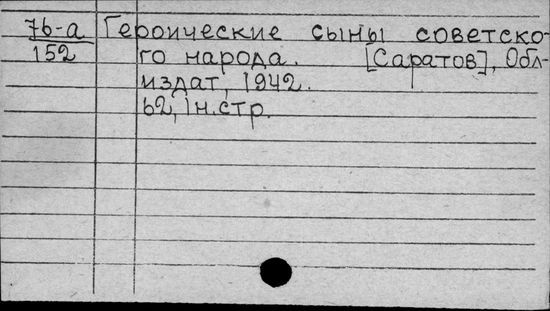 76-а Героические сыны советско-
152 го народа. [Саратов], Обл-
издат, 1942.
62, 1 н. стр.